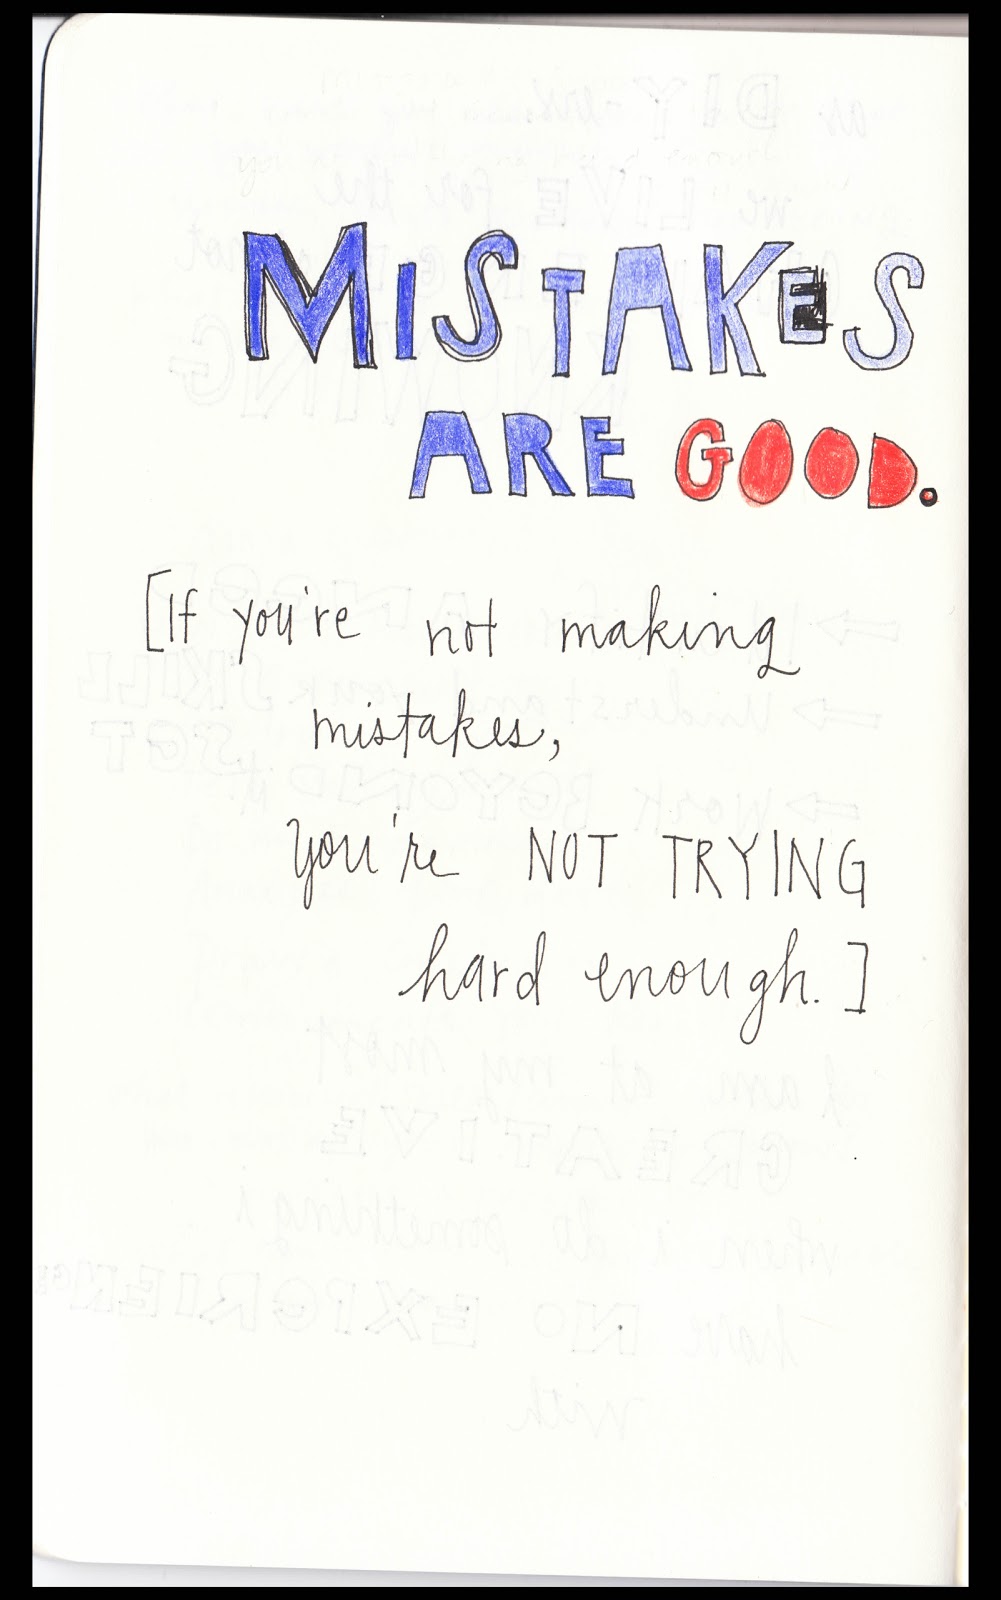 MISTAKES
ARE GOOD.
[If you're not making
mistakes,
you're NOT TRYING
hard enough.]